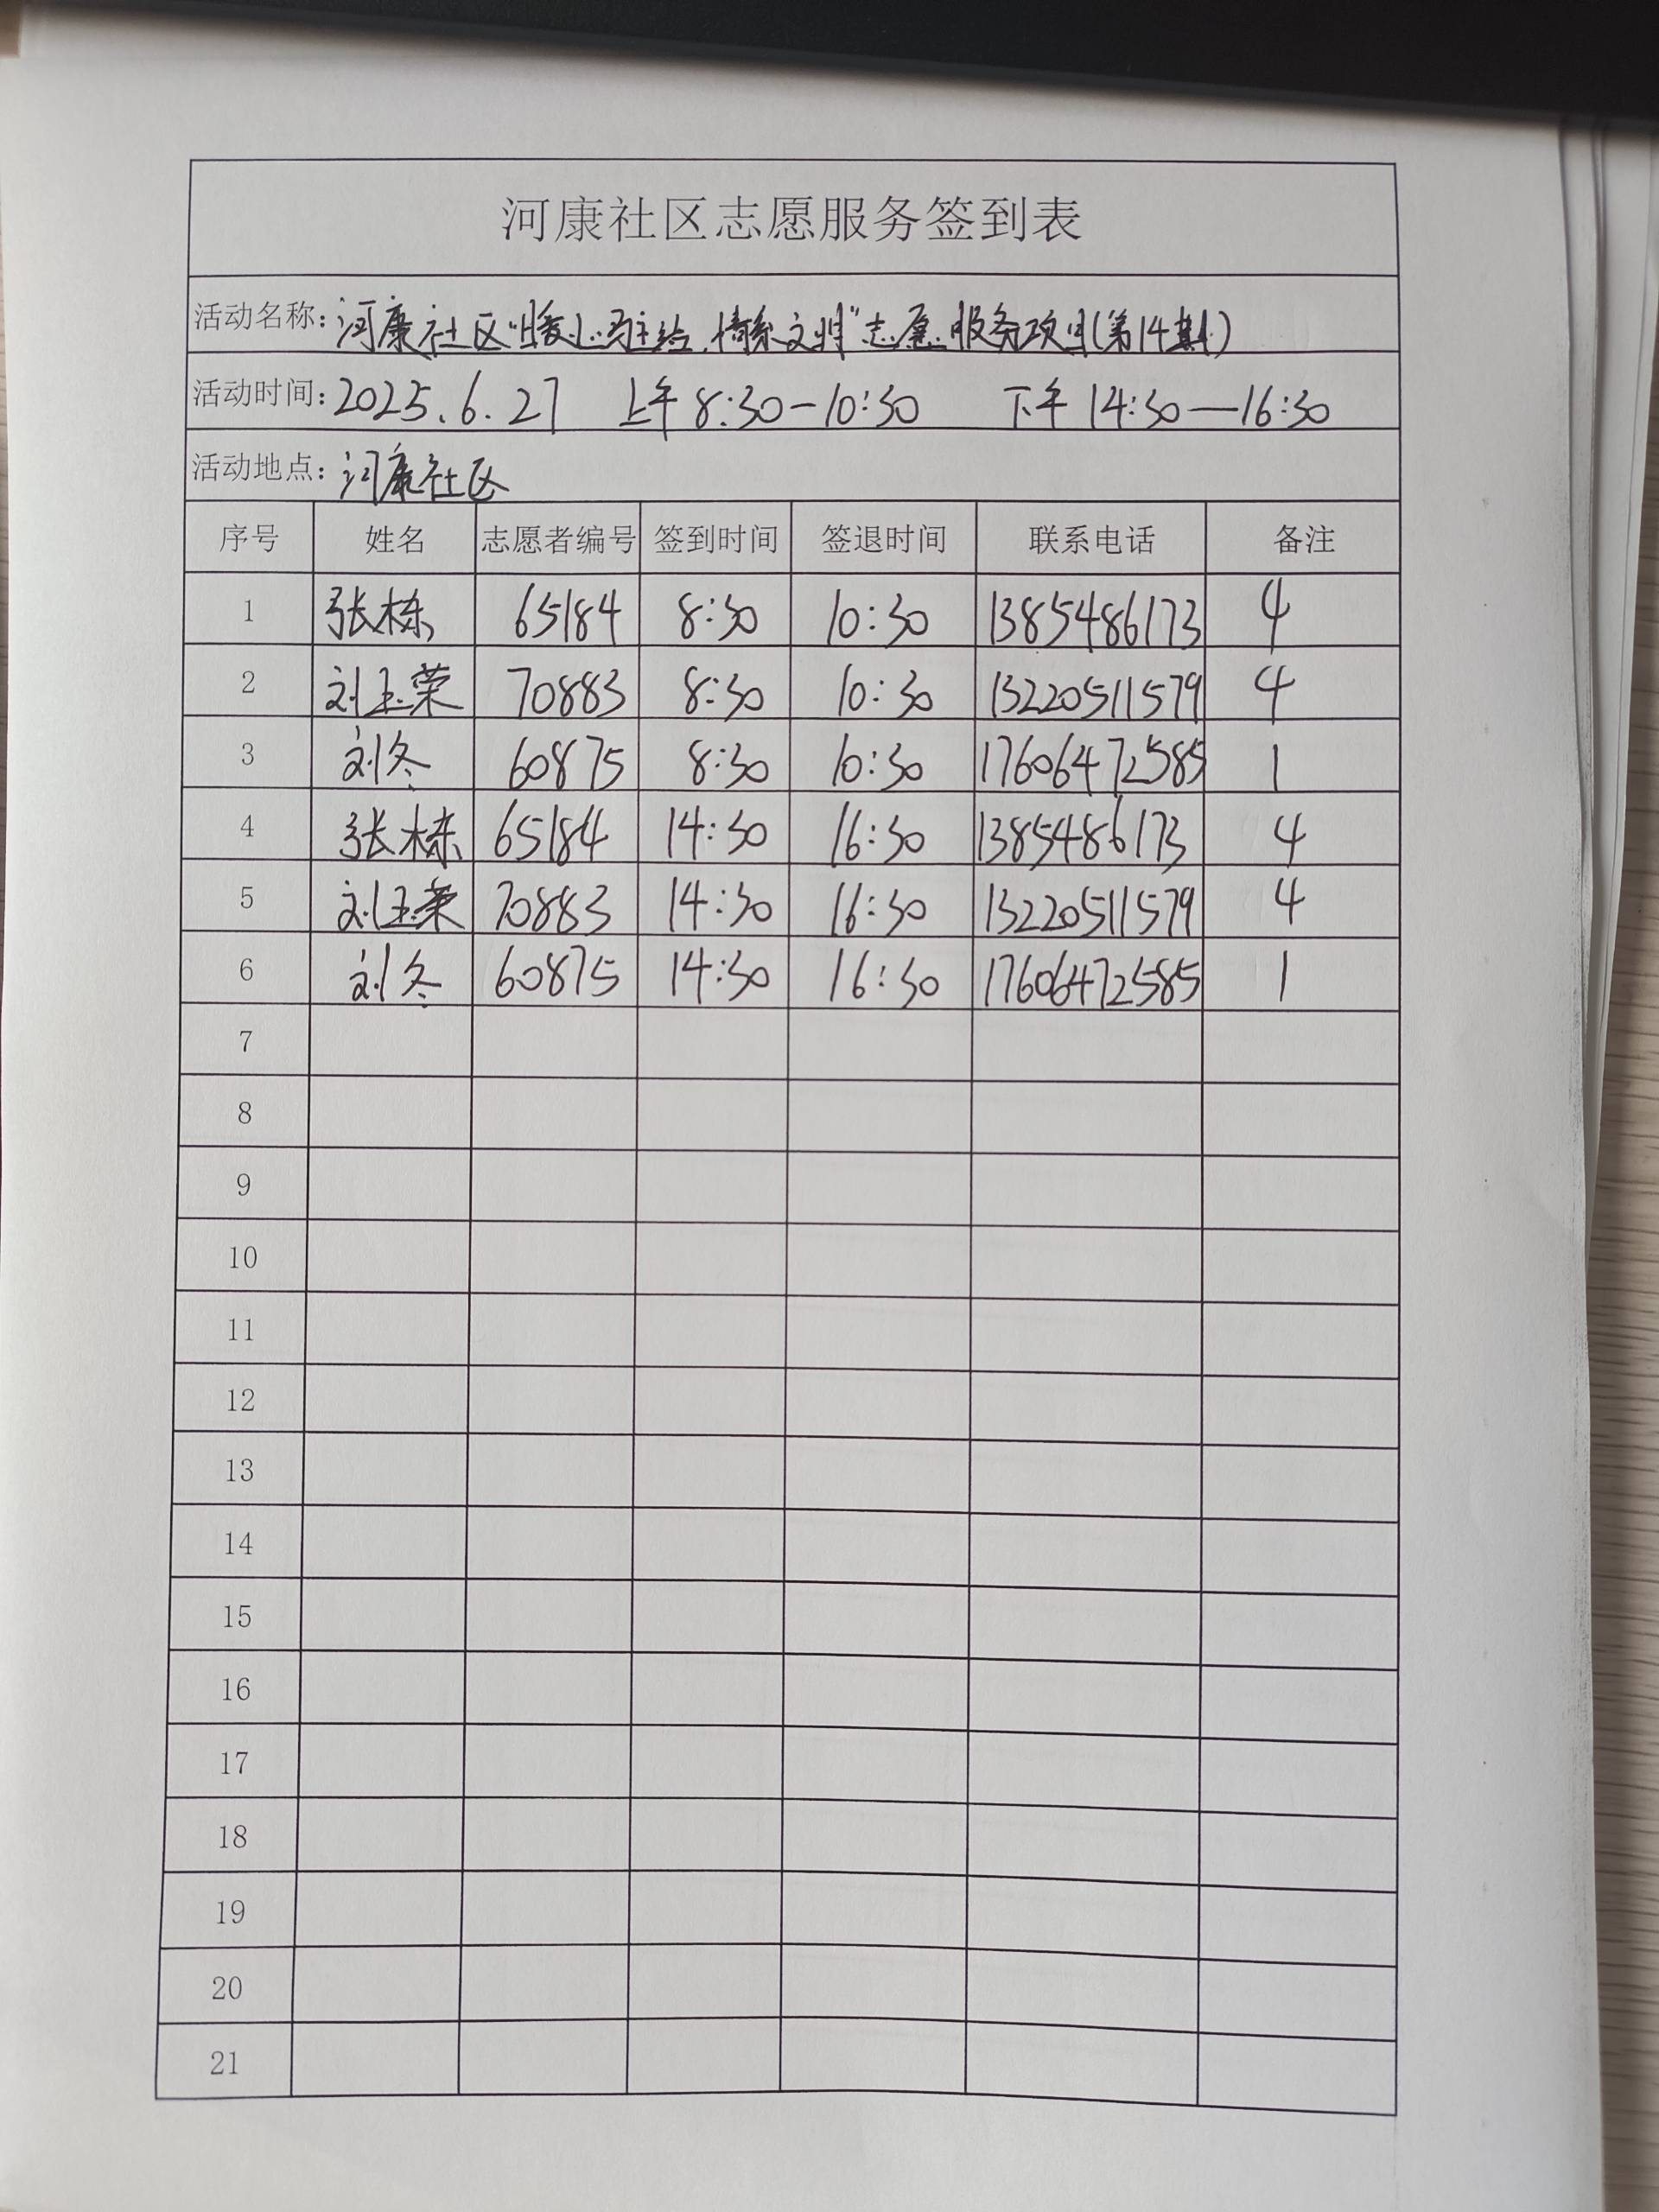 河康社区志愿服务签到表
活动名称：河康社区“暖心驿站，情系文明”志愿服务项目（第14期）
活动时间：2025.6.27 上午8:30-10:30 下午14:30—16:30
活动地点：河康社区
序号 姓名 志愿者编号 签到时间 签退时间 联系电话 备注
1 张栋 65184 8:30 10:30 1385486173 4
2 刘玉荣 70883 8:30 10:30 13220511579 4
3 刘冬 60875 8:30 10:30 17606472585 1
4 张栋 65184 14:30 16:30 1385486173 4
5 刘玉荣 70883 14:30 16:30 13220511579 4
6 刘冬 60875 14:30 16:30 17606472585 1
7
8
9
10
11
12
13
14
15
16
17
18
19
20
21